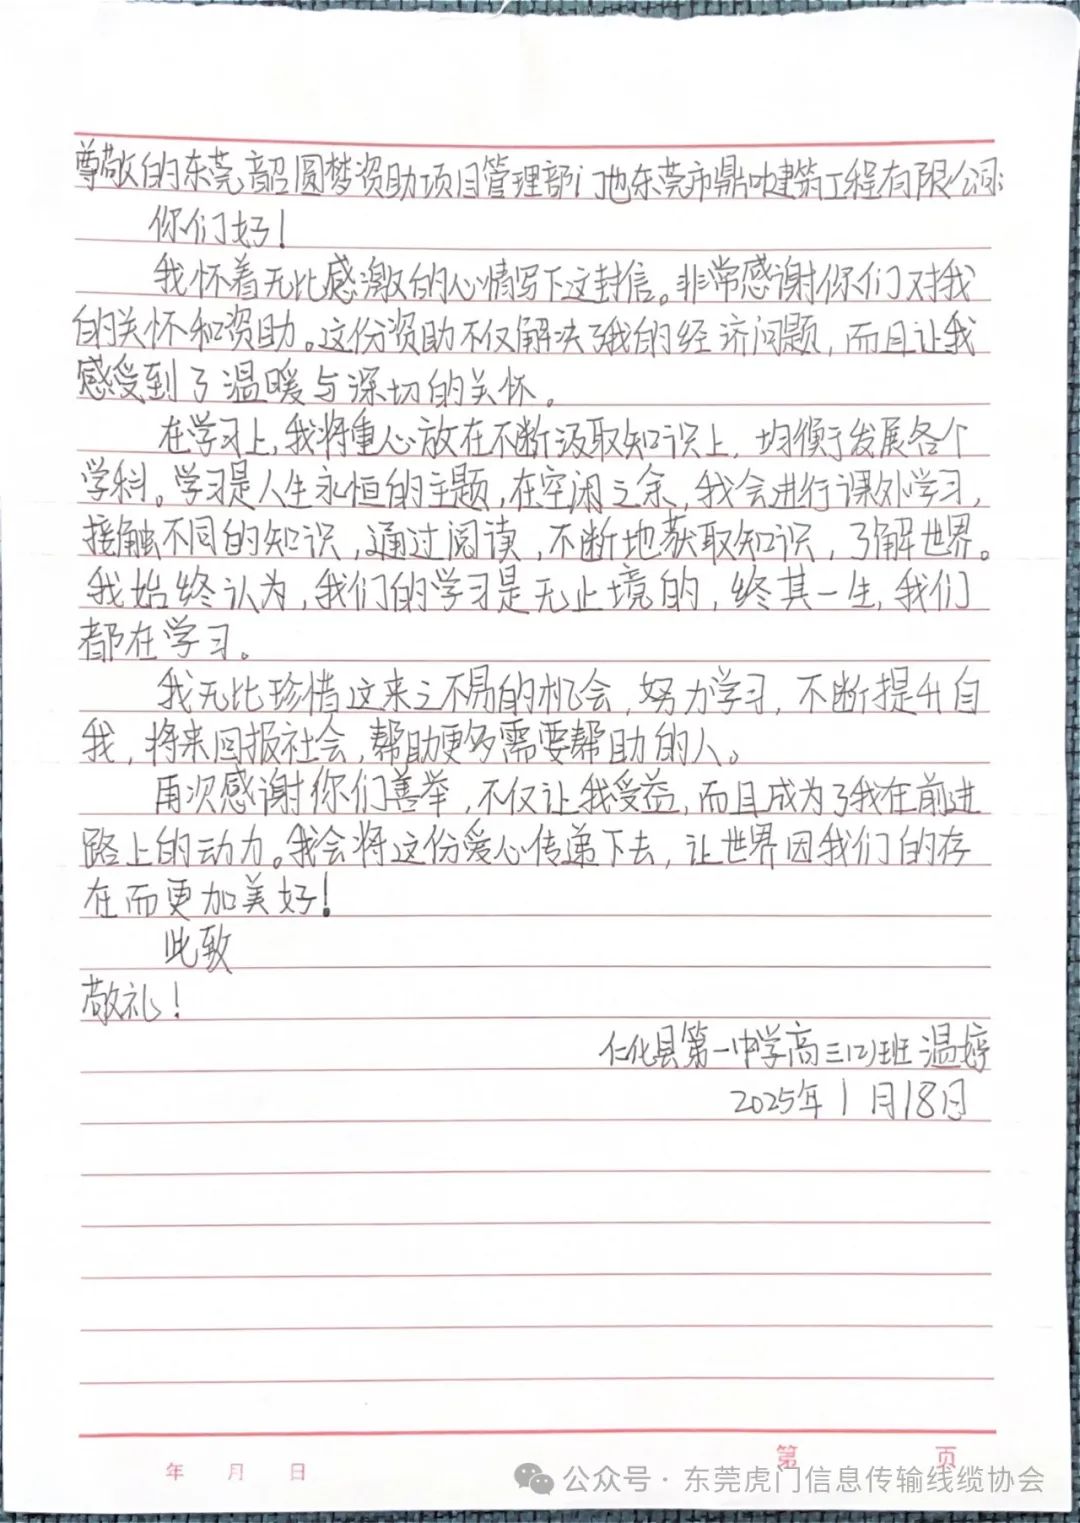 尊敬的东莞韶圆梦资助项目管理部门也东莞市鼎建筑工程有限公司:
你们好!
我怀着无比感激的心情写下这封信。非常感谢你们对我
的关怀和资助。这份资助不仅解决了我的经济问题,而且让我
感受到了温暖与深切的关怀。
在学习上,我将重心放在不断汲取知识上,均衡于发展各个
学科。学习是人生永恒的主题,在空闲之余,我会进行课外学习,
接触不同的知识,通过阅读,不断地获取知识,了解世界。
我始终认为,我们的学习是无止境的,终其一生,我们
都在学习。
我无比珍惜这来之不易的机会,努力学习,不断提升自
我,将来回报社会,帮助更多需要帮助的人。
再次感谢你们善举,不仅让我受益,而且成为了我在前进
路上的动力。我会将这份爱心传递下去,让世界因我们的存
在而更加美好!
此致
敬礼!
仁化县第一中学高三(2)班 温婷
2025年1月18日
年 月 日 第 页
公众号·东莞虎门信息传输线缆协会